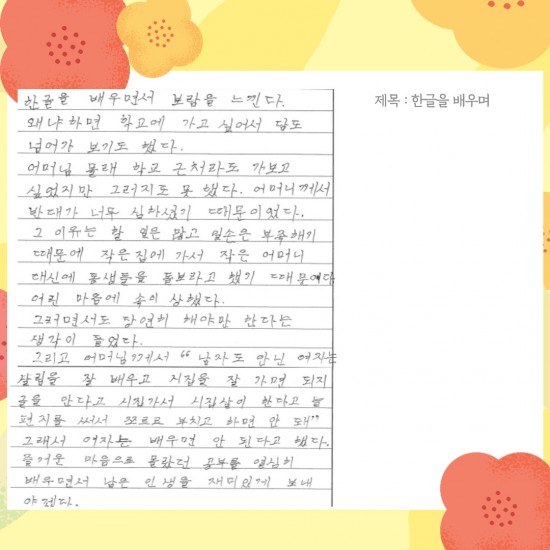 제목 : 한글을 배우며
한글을 배우면서 보람을 느낀다.
왜냐하면 학교에 가고 싶어서 담도
넘어가 보기도 했다.
어머님 몰래 학교 근처라도 가보고
싶었지만 그러지도 못했다. 어머니께서
반대가 너무 심하셨기 때문이었다.
그 이유는 할 일은 많고 일손은 부족해기
때문에 작은집에 가서 작은 어머니
대신에 동생들을 돌보라고 했기 때문에다
어린 마음에 속이 상했다.
그러면서도 당연히 해야만 한다는
생각이 들었다.
그리고 어머님께서 “남자도 안닌 여자는
살림을 잘 배우고 시집을 잘 가면 되지
글을 안다고 시집가서 시집살이 한다고 늘
편지를 써서 쪼르르 부치고 하면 안 돼”
그래서 여자는 배우면 안 된다고 했다.
즐거운 마음으로 몰랐던 공부를 열심히
배우면서 남은 인생을 재미있게 보내
야겠다.